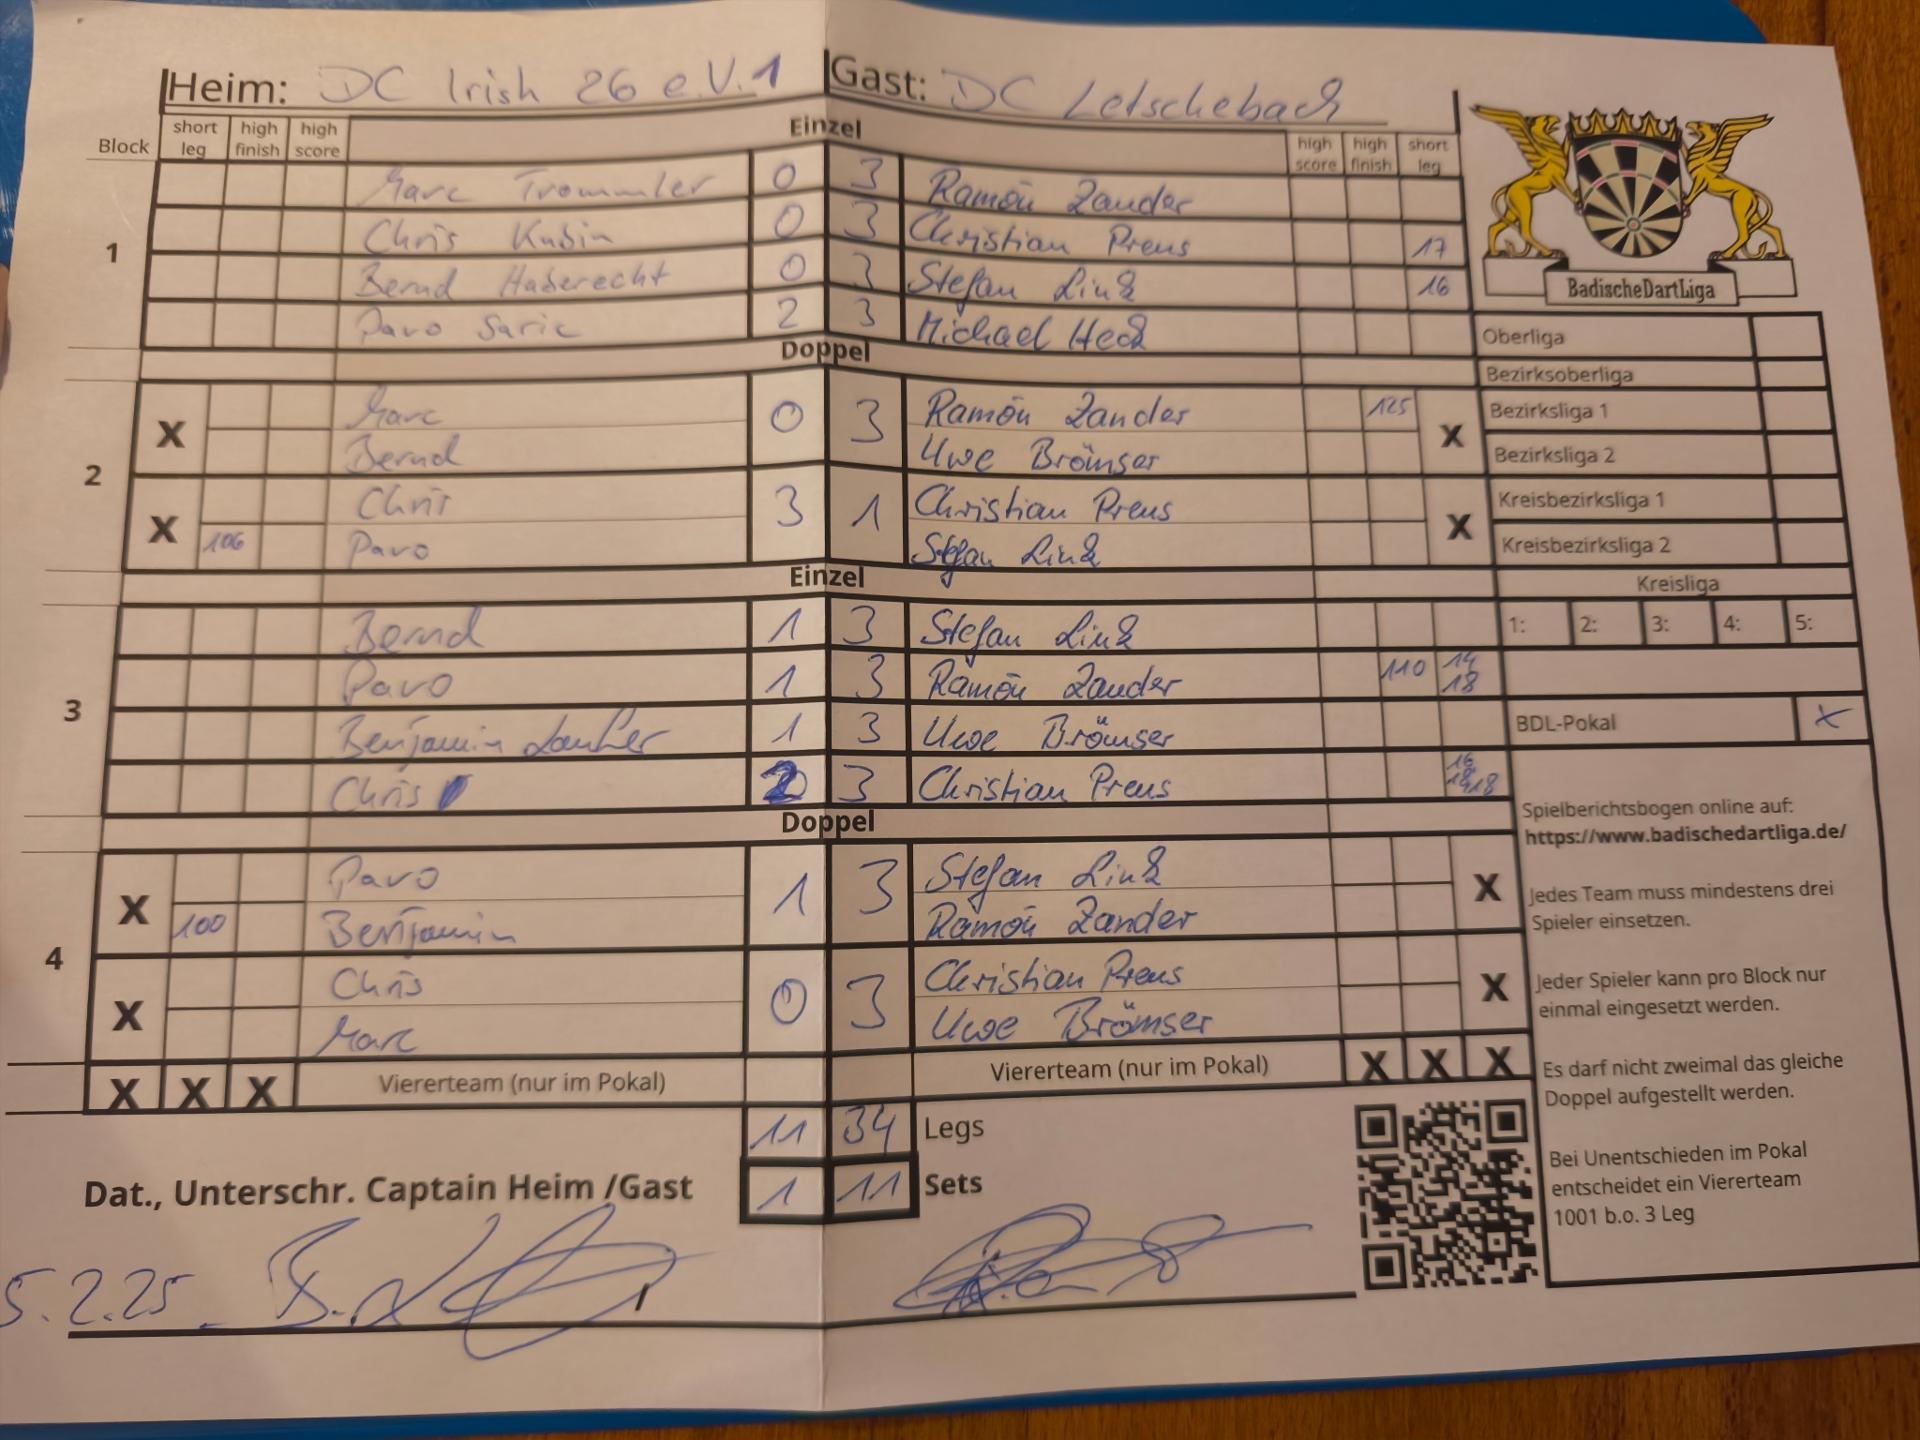 Heim: DC Irish 26 e.V. 1 Gast: DC Letschebach
Block short leg high finish high score Einzel high score high finish short leg
1
Marc Trommler 0 3 Ramón Zander
Chris Kubin 0 3 Christian Preus 17
Bernd Haberecht 0 3 Stefan Link 16
Pavo Saric 2 3 Michael Heck
Doppel
2
X Marc 0 3 Ramón Zander 125 X
Bernd Uwe Brömser
X Chris 3 1 Christian Preus X
106 Pavo Stefan Link
Einzel
3
Bernd 1 3 Stefan Link
Pavo 1 3 Ramón Zander 110 14 18
Benjamin 1 3 Uwe Brömser
Chris 2 3 Christian Preus 16 18 18
Doppel
4
X Pavo 1 3 Stefan Link X
100 Benjamin Ramón Zander
X Chris 0 3 Christian Preus X
Marc Uwe Brömser
X X X Viererteam (nur im Pokal) Viererteam (nur im Pokal) X X X
11 34 Legs
Dat., Unterschr. Captain Heim /Gast 1 11 Sets
5.2.25
BadischeDartLiga
Oberliga
Bezirksoberliga
Bezirksliga 1
Bezirksliga 2
Kreisbezirksliga 1
Kreisbezirksliga 2
Kreisliga
1: 2: 3: 4: 5:
BDL-Pokal X
Spielberichtsbogen online auf:
https://www.badischedartliga.de/
Jedes Team muss mindestens drei
Spieler einsetzen.
Jeder Spieler kann pro Block nur
einmal eingesetzt werden.
Es darf nicht zweimal das gleiche
Doppel aufgestellt werden.
Bei Unentschieden im Pokal
entscheidet ein Viererteam
1001 b.o. 3 Leg